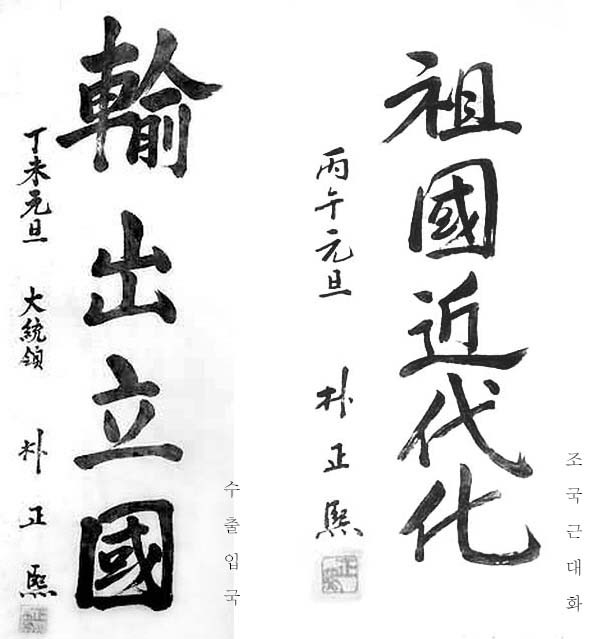 輸出立國
丁未元旦 大統領 朴正熙
수출입국
祖國近代化
丙午元旦 朴正熙
조국근대화